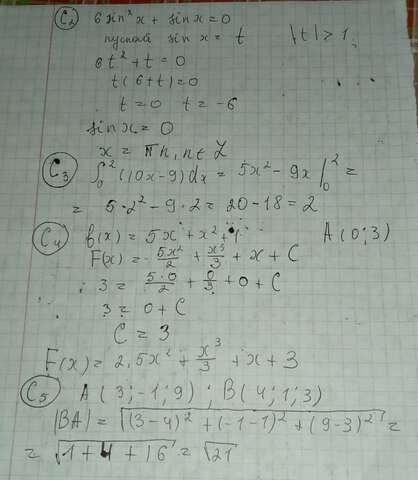 C2 6 sin²x + sin x = 0
пускай sin x = t |t| > 1
6t² + t = 0
t(6+t) = 0
t = 0 t = -6
sin x = 0
x = πn, n ∈ Z
C3 ∫₀² (10x-9)dx = 5x² - 9x |₀² =
= 5·2² - 9·2 = 20 - 18 = 2
C4 f(x) = 5x + x² + 1 A(0;3)
F(x) = 5x²/2 + x³/3 + x + C
3 = 5·0/2 + 0/3 + 0 + C
3 = 0 + C
C = 3
F(x) = 2,5x² + x³/3 + x + 3
C5 A(3;-1;9); B(4;1;3)
|BA| = √((3-4)² + (-1-1)² + (9-3)²) =
= √(1+4+16) = √21